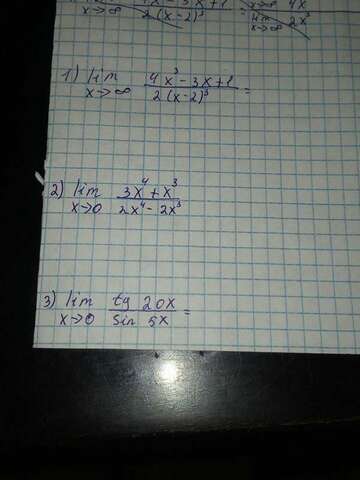 lim x→∞ 4x³-3x+1 / 2(x-2)³ = 4x / lim x→∞ 2x³
1) lim x→∞ 4x³-3x+1 / 2(x-2)³ =
2) lim x→0 3x⁴+x³ / 2x⁴-2x³
3) lim x→0 tg 20x / sin 5x =